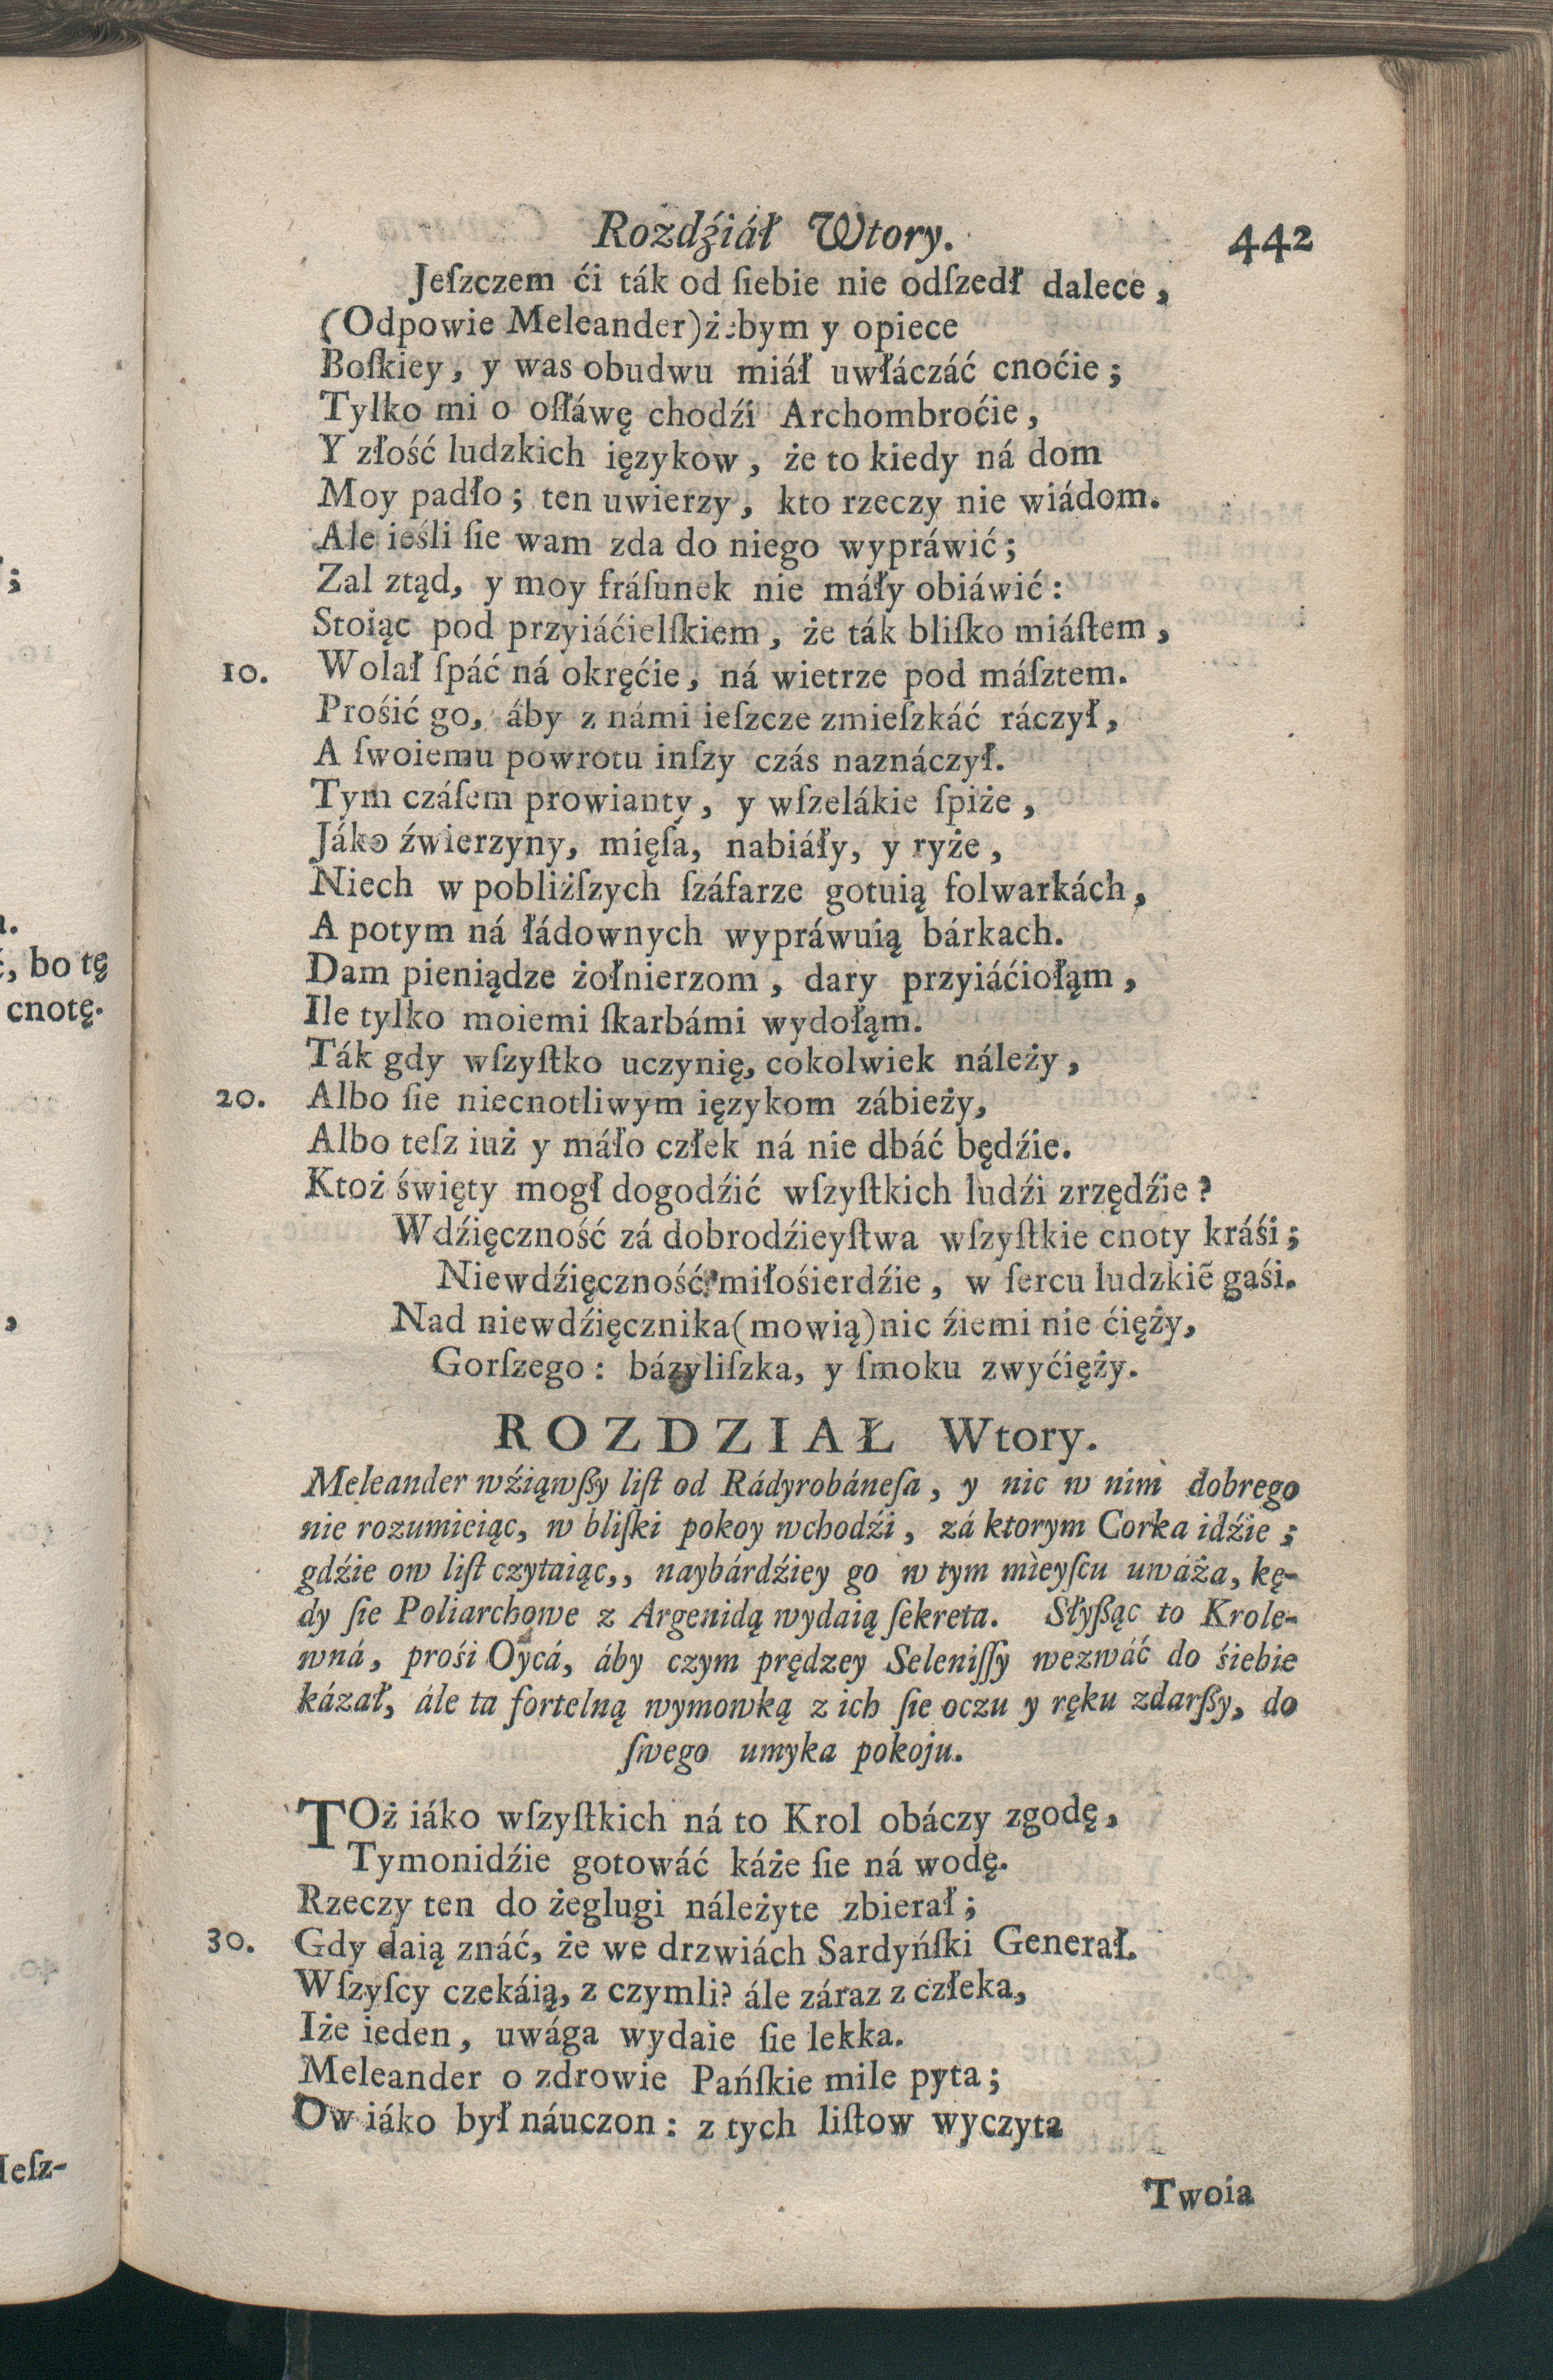 Rozdźiáł Wtory. 442
Jeſzczem ći ták od ſiebie nie odſzedł dalece,
(Odpowie Meleander) żebym y opiece
Boſkiey, y was obudwu miáł uwłáczáć cnoćie;
Tylko mi o oſſáwę chodźi Archombroćie,
Y złość ludzkich ięzykow, że to kiedy ná dom
Moy padło; ten uwierzy, kto rzeczy nie wiádom.
Ale ieśli ſie wam zda do niego wypráwić;
Zal ztąd, y moy fráſunek nie máły obiáwić:
Stoiąc pod przyiáćielſkiem, że ták bliſko miáſtem,
10. Wolał ſpáć ná okręćie, ná wietrze pod máſztem.
Prośić go, áby z námi ieſzcze zmieſzkáć ráczył,
A ſwoiemu powrotu inſzy czás naznáczył.
Tym czáſem prowianty, y wſzelákie ſpiże,
Jáko źwierzyny, mięſá, nabiáły, y ryże,
Niech w pobliżſzych ſzáfarze gotuią folwarkách,
A potym ná łádownych wypráwuią bárkach.
Dam pieniądze żołnierzom, dary przyiáćiołąm,
Ile tylko moiemi ſkarbámi wydołąm.
Ták gdy wſzyſtko uczynię, cokolwiek náleży,
20. Albo ſie niecnotliwym ięzykom zábieży,
Albo teſz iuż y máło człek ná nie dbáć będźie.
Ktoż święty mogł dogodźić wſzyſtkich ludźi zrzędźie?
Wdźięczność zá dobrodźieyſtwa wſzyſtkie cnoty kráśi;
Niewdźięczność miłośierdźie, w ſercu ludzkiē gaśi.
Nad niewdźięcznika (mowią) nic źiemi nie ćięży,
Gorſzego: bázyliſzka, y ſmoku zwyćięży.
ROZDZIAŁ Wtory.
Meleander wźiąwſzy liſt od Rádyrobáneſa, y nic w nim dobrego
nie rozumieiąc, w bliſki pokoy wchodźi, zá ktorym Corka idźie;
gdźie ow liſt czytaiąc,, naybárdźiey go w tym mieyſcu uwáża, kę-
dy ſie Poliarchowe z Argenidą wydaią ſekreta. Słyſząc to Krole-
wná, prośi Oycá, áby czym prędzey Seleniſſy wezwáć do śiebie
kázał, ále ta fortelną wymowką z ich ſie oczu y ręku zdarſzy, do
ſwego umyka pokoju.
TOż iáko wſzyſtkich ná to Krol obáczy zgodę,
Tymonidźie gotowáć káże ſie ná wodę.
Rzeczy ten do żeglugi náleżyte zbierał;
30. Gdy daią znáć, że we drzwiách Sardyńſki Generał.
Wſzyſcy czekáią, z czymli? ále záraz z człeka,
Iże ieden, uwága wydaie ſie lekka.
Meleander o zdrowie Pańſkie mile pyta;
Ow iáko był náuczon: z tych liſtow wyczyta
Twoia
, bo tę
cnotę.